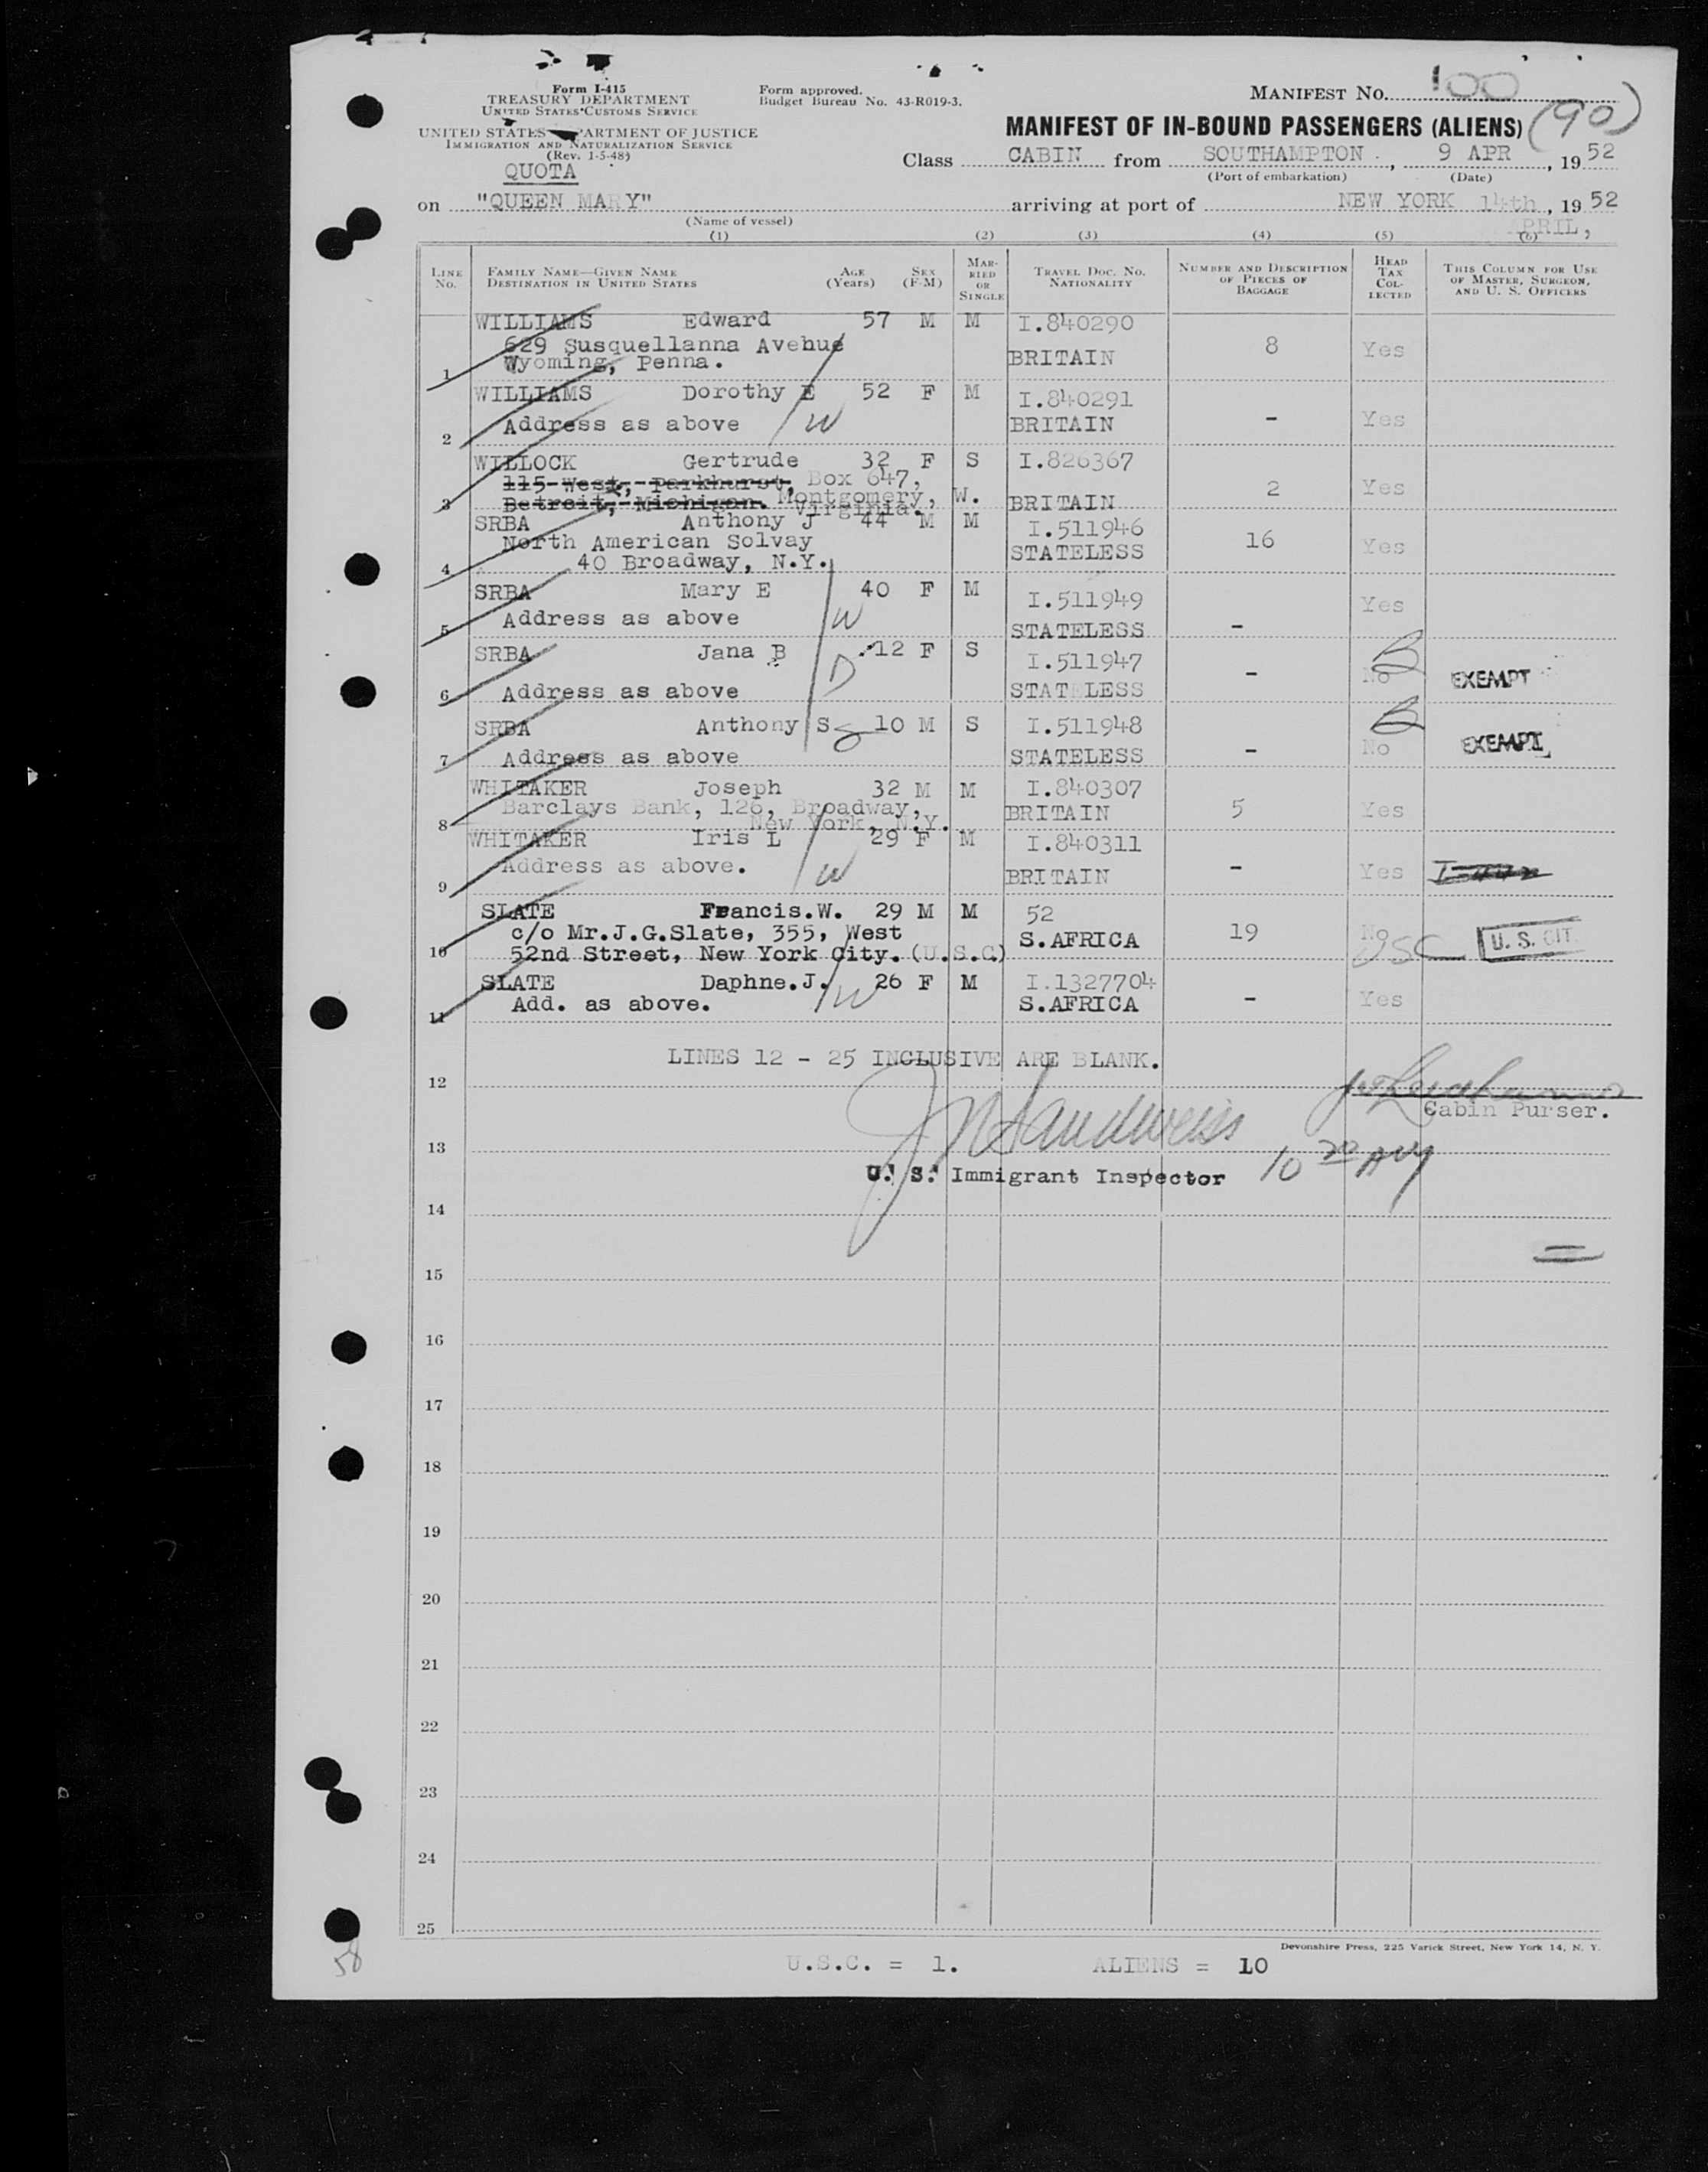 Form I-415
TREASURY DEPARTMENT
UNITED STATES CUSTOMS SERVICE
UNITED STATES PARTMENT OF JUSTICE
IMMIGRATION AND NATURALIZATION SERVICE
(Rev. 1-5-48)
QUOTA
Form approved.
Budget Bureau No. 43-R019-3.
MANIFEST No. 100
MANIFEST OF IN-BOUND PASSENGERS (ALIENS) (90)
Class CABIN from SOUTHAMPTON, 9 APR, 19 52
(Port of embarkation) (Date)
on "QUEEN MARY" arriving at port of NEW YORK 14th, 19 52
(Name of vessel) APRIL,
(1) (2) (3) (4) (5) (6)
LINE No. FAMILY NAME—GIVEN NAME DESTINATION IN UNITED STATES AGE (Years) SEX (F-M) MARRIED OR SINGLE TRAVEL DOC. NO. NATIONALITY NUMBER AND DESCRIPTION OF PIECES OF BAGGAGE HEAD TAX COLLECTED THIS COLUMN FOR USE OF MASTER, SURGEON, AND U. S. OFFICERS
WILLIAMS Edward 57 M M I.840290
629 Susquellanna Avehue 8 Yes
1 Wyoming, Penna. BRITAIN
WILLIAMS Dorothy E 52 F M I.840291
2 Address as above W BRITAIN - Yes
WILLOCK Gertrude 32 F S I.826367
115 West, Parkhurst, Box 647, 2 Yes
3 Detroit, Michigan. Montgomery, W. BRITAIN
Virginia.
SRBA Anthony J 44 M M I.511946
North American Solvay STATELESS 16 Yes
4 40 Broadway, N.Y.
SRBA Mary E 40 F M I.511949 Yes
5 Address as above W STATELESS -
SRBA Jana B 12 F S I.511947
6 Address as above D STATELESS - No EXEMPT
SRBA Anthony S S 10 M S I.511948
7 Address as above STATELESS - No EXEMPT
WHITAKER Joseph 32 M M I.840307
8 Barclays Bank, 126, Broadway, BRITAIN 5 Yes
New York, N.Y.
WHITAKER Iris L 29 F M I.840311
9 Address as above. W BRITAIN - Yes
SLATE Francis.W. 29 M M 52
c/o Mr.J.G.Slate, 355, West S.AFRICA 19 No
10 52nd Street, New York City. (U.S.C) USC U. S. CIT.
SLATE Daphne.J. 26 F M I.1327704
11 Add. as above. W S.AFRICA - Yes
LINES 12 - 25 INCLUSIVE ARE BLANK.
12
Cabin Purser.
13
U. S. Immigrant Inspector 10
14
15
16
17
18
19
20
21
22
23
24
25
Devonshire Press, 225 Varick Street, New York 14, N. Y.
58
U.S.C. = 1. ALIENS = 10